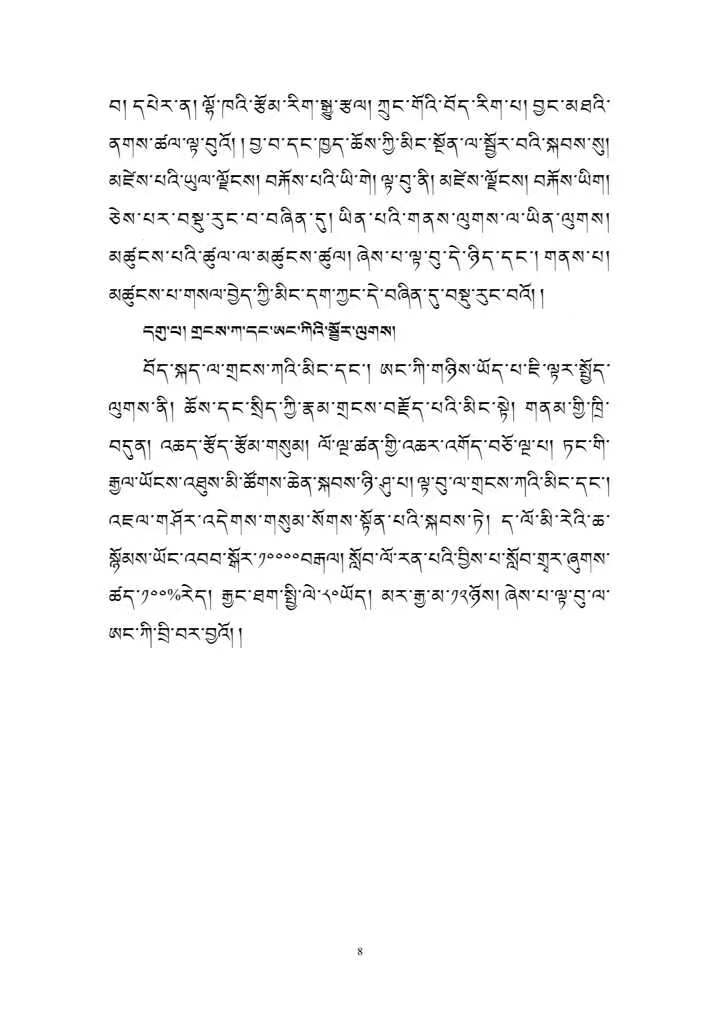 བ། དཔེར་ན། ལྷོ་ཁའི་རྩོམ་རིག་སྒྱུ་རྩལ། ཀྲུང་གོའི་བོད་རིག་པ། བྱང་མཐའི་
ནགས་ཚལ་ལྟ་བུའོ། །བྱ་བ་དང་ཁྱད་ཆོས་ཀྱི་མིང་སྔོན་ལ་སྦྱོར་བའི་སྐབས་སུ།
མཛེས་པའི་ཡུལ་ལྗོངས། བརྐོས་པའི་ཡི་གེ། ལྟ་བུ་ནི། མཛེས་ལྗོངས། བརྐོས་ཡིག།
ཅེས་པར་བསྡུ་རུང་བ་བཞིན་དུ། ཡིན་པའི་གནས་ལུགས་ལ་ཡིན་ལུགས།
མཚུངས་པའི་ཚུལ་ལ་མཚུངས་ཚུལ། ཞེས་པ་ལྟ་བུ་དེ་ཉིད་དང་། གནས་པ།
མཚུངས་པ་གསལ་བྱེད་ཀྱི་མིང་དག་ཀྱང་དེ་བཞིན་དུ་བསྡུ་རུང་བའོ། །
དགུ་པ། གྲངས་ཀ་དང་ཨང་ཀིའི་སྦྱོར་ལུགས།
བོད་སྐད་ལ་གྲངས་ཀའི་མིང་དང་། ཨང་ཀི་གཉིས་ཡོད་པ་ཇི་ལྟར་སྤྱོད་
ལུགས་ནི། ཆོས་དང་སྲིད་ཀྱི་རྣམ་གྲངས་བརྗོད་པའི་མིང་སྟེ། གནམ་གྱི་ཁྲི་
བདུན། འཆད་རྩོད་རྩོམ་གསུམ། ལོ་ལྔ་ཚན་གྱི་འཆར་འགོད་བཅོ་ལྔ་པ། ཏང་གི་
རྒྱལ་ཡོངས་འཐུས་མི་ཚོགས་ཆེན་སྐབས་ཉི་ཤུ་པ། ལྟ་བུ་ལ་གྲངས་ཀའི་མིང་དང་།
འཇལ་གཤོར་འདེགས་གསུམ་སོགས་སྟོན་པའི་སྐབས་ཏེ། ད་ལོ་མི་རེའི་ཆ་
སྙོམས་ཡོང་འབབ་སྒོར་༡༠༠༠༠བརྒལ། སློབ་ལོ་རན་པའི་བྱིས་པ་སློབ་གྲྭར་ཞུགས་
ཚད་༡༠༠%རེད། རྒྱང་ཐག་སྤྱི་ལེ་༨༠ཡོད། མར་རྒྱ་མ་༡༢ཉོས། ཞེས་པ་ལྟ་བུ་ལ་
ཨང་ཀི་བྲི་བར་བྱའོ། །
8